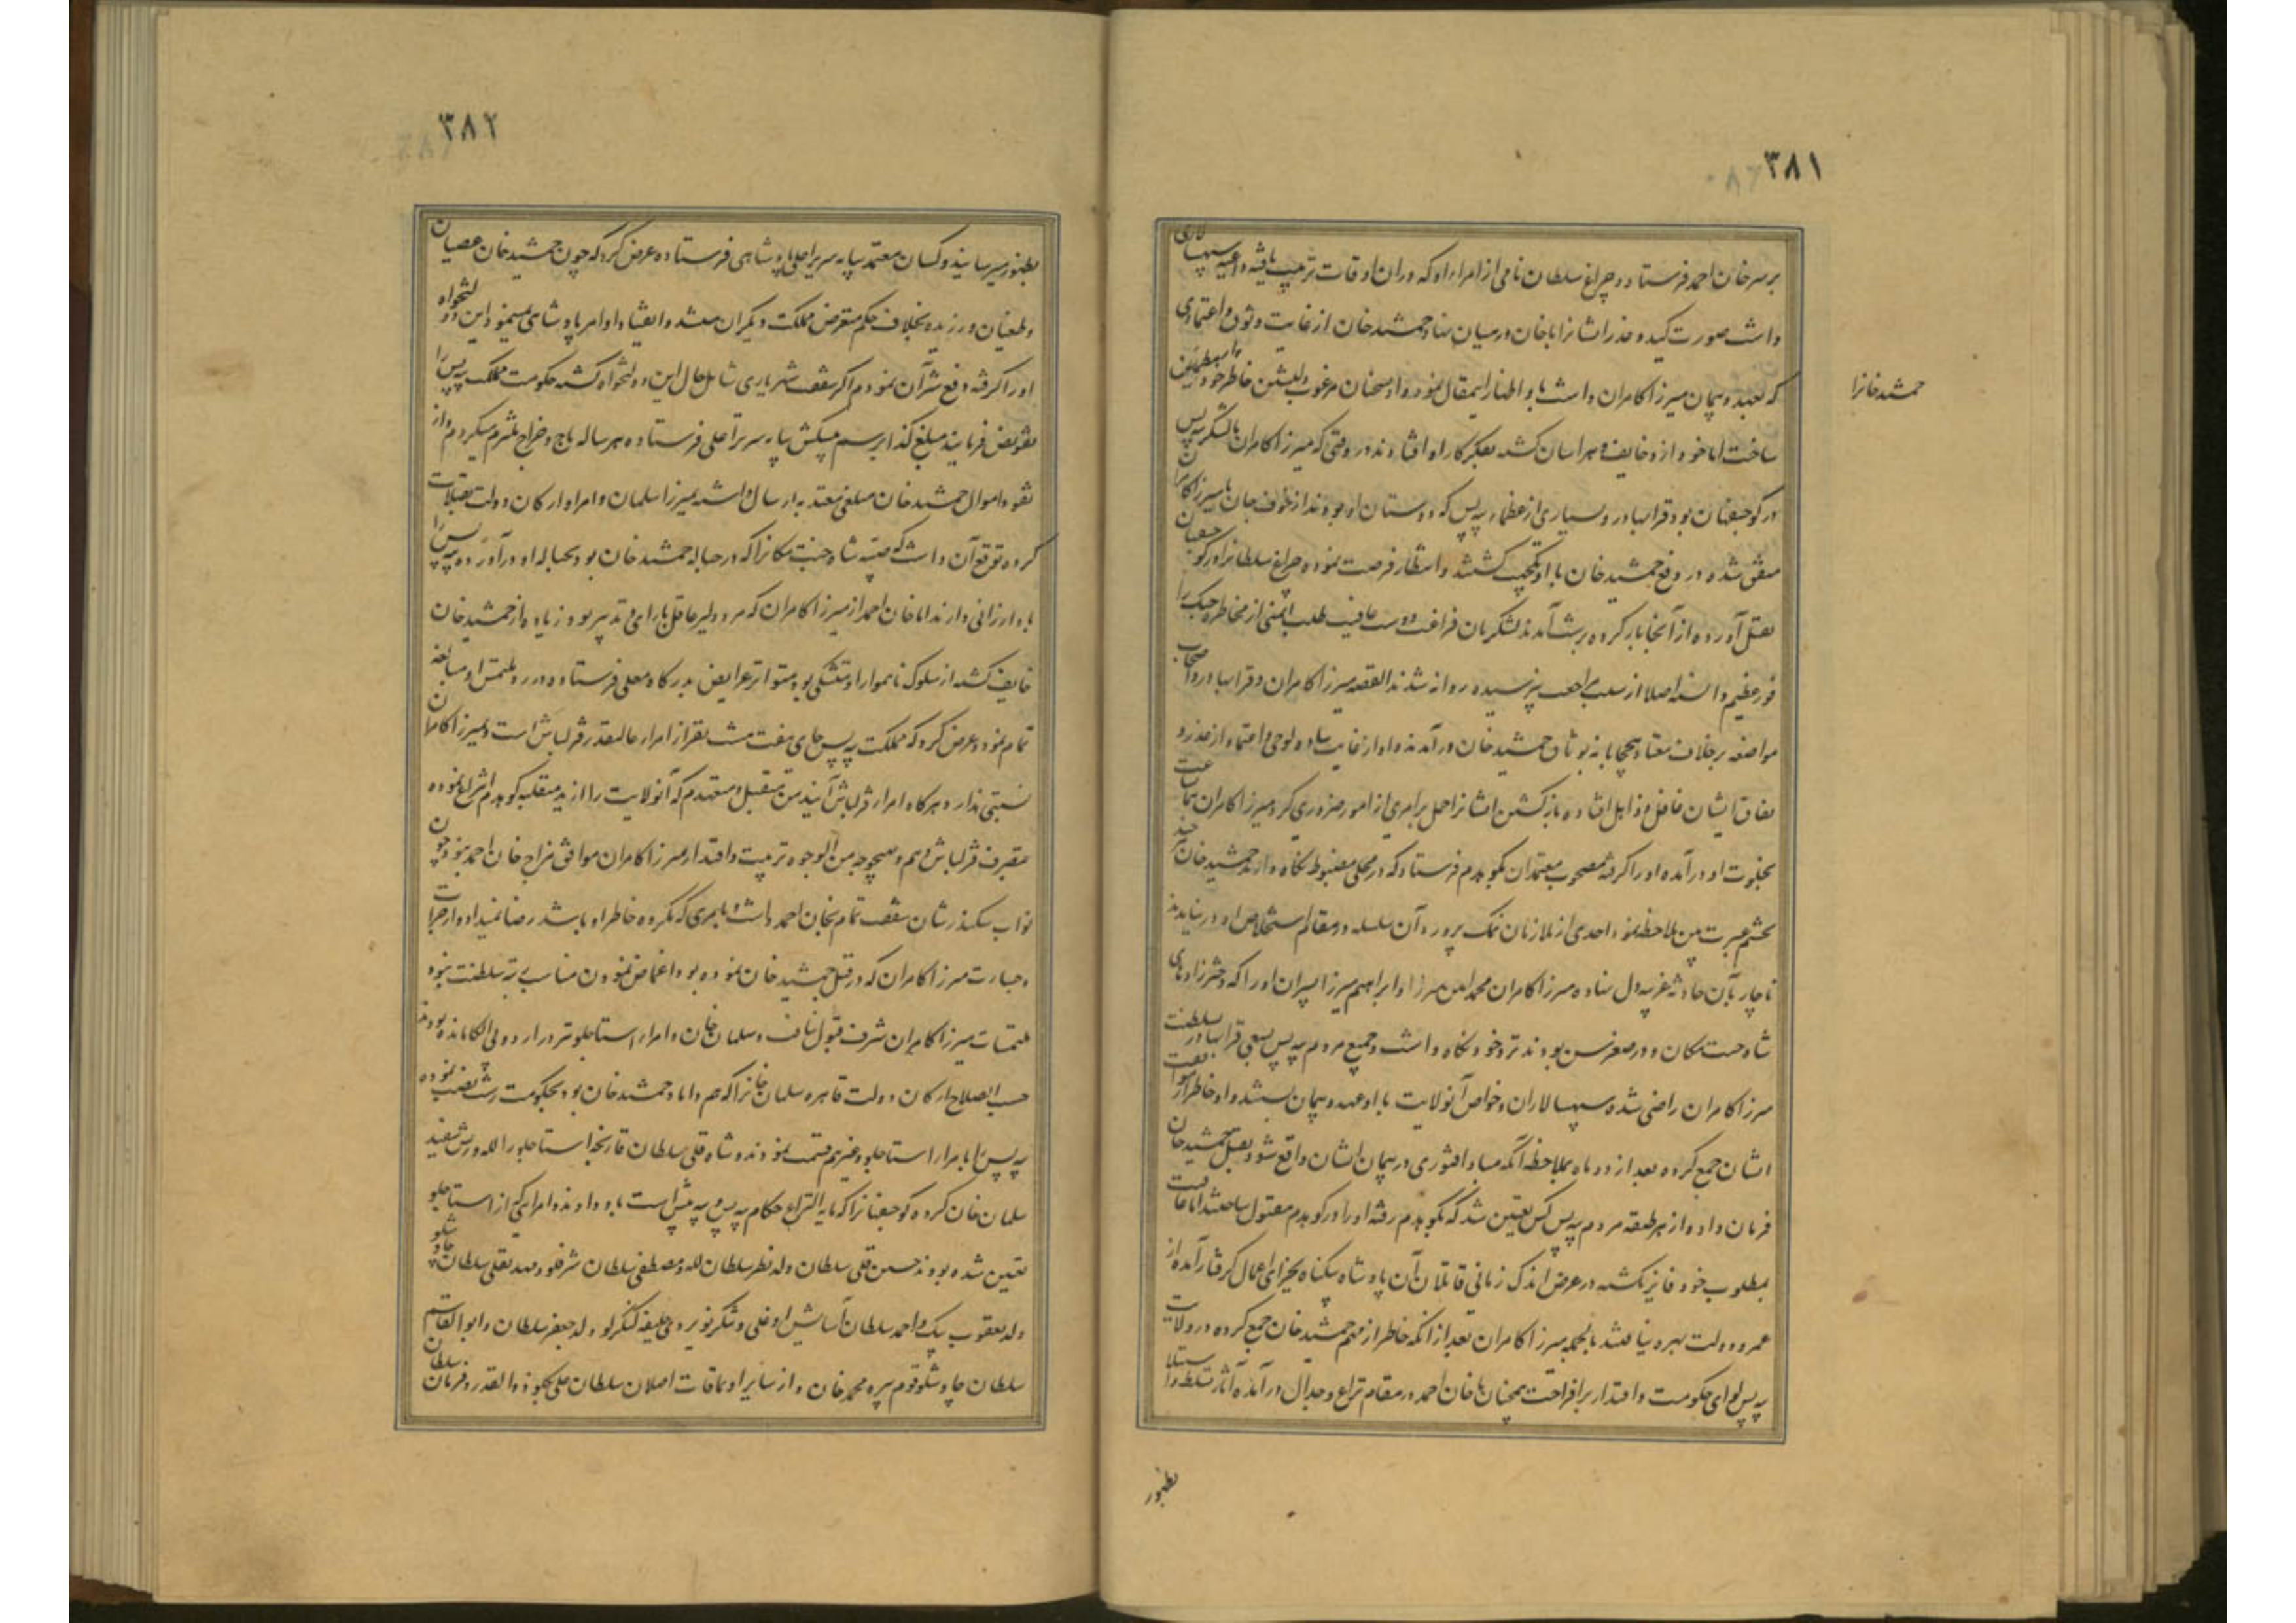 ۳۸۱
بر سر خان احمد فرستاد و چراغ سلطان نامی از امراء او که در ان اوقات ترتیب یافته داعیه سپهسالاری
داشت صورت کید و غدر ایشانرا با خان در میان نهاد جمشید خان از غایت وثوق و اعتمادی
که بعهد و پیمان میرزا کامران داشت باو اظهار اینمقال نموده او سخنان مرغوب دلنشین خاطر خود را مطمئن
جمشید خانرا
ساخت اما خود از و خایف و هراسان گشته بفکر کار او افتادند در وقتی که میرزا کامران بالشکر بیه پس
در کوچصفهان بود قرابهادر و بسیاری از عظماء بیه پس که دوستان او بودند از خوف جان با میرزا کامران
متفق شده در دفع جمشید خان با او یکجهت گشتند و انتظار فرصت نموده چراغ سلطانرا در کوچصفهان
بقتل آورده از آنجا بار کرده برشت آمدند لشکریان فراغت دوست عافیت طلب ایمنی از مخاطره جنک را
فوز عظیم دانسته اصلا از سبب مراجعت نپرسیده روانه شدند القصه میرزا کامران و قرابهادر و اصحاب
مواضعه بر خلاف معتاد بیمحابا به وثاق جمشید خان در آمدند و او از غایت ساده لوحی و اعتماد از غدر و
نفاق ایشان غافل و ذاهل افتاده باز گشتن ایشانرا حمل بر امری از امور ضروری کرد میرزا کامران همان ساعت
بخلوت او در آمده او را گرفته مصحوب معتمدان بکوهدم فرستاد که در محلی مضبوط نگاه دارند جمشید خان هر چند
بچشم عبرت بین ملاحظه نمود احدی از ملازمان نمک پرورده آن سلسله در مقام استخلاص او در نیامدند
ناچار بآن حادثه غریبه دل نهاده میرزا کامران محمد امین میرزا و ابراهیم میرزا پسران او را که دخترزادهای
شاه جنت مکان و در صغر سن بودند نزد خود نگاه داشت و جمیع مردم بیه پس بسعی قرابهادر بسلطنت
میرزا کامران راضی شده سپهسالاران و خواص آنولایت با او عهد و پیمان بستند و او خاطر از موافقت
ایشان جمع کرده بعد از دو ماه بملاحظه آنکه مبادا فتوری در پیمان ایشان واقع شود بقتل جمشید خان
فرمان داد و از هر طبقه مردم بیه پس کس تعیین شد که بکوهدم رفته او را در کوهدم مقتول ساختند اما عاقبت
بمطلوب خود فایز نگشته در عرض اندک زمانی قاتلان آن پادشاه بیگناه بجزای اعمال گرفتار آمده از
عمر و دولت بهره نیافتند بالجمله میرزا کامران بعد از انکه خاطر از مهم جمشید خان جمع کرده در ولایت
بیه پس لوای حکومت و اقتدار بر افراخت همچنان با خان احمد در مقام نزاع و جدال در آمده آثار تسلط و استیلا
بظهور
۳۸۲
بظهور میرسانید و کسان معتمد بپایه سریر اعلی پادشاهی فرستاده عرض کرد که چون جمشید خان عصیان
و طغیان ورزیده بخلاف حکم متعرض مملکت دیگران میشد و انقیاد اوامر پادشاهی نمینمود این دولتخواه
او را گرفته دفع شر آن نمودم اگر شفقت شهریاری شامل حال این دولتخواه گشته حکومت مملکت بیه پس را
تفویض فرمایند مبلغ کذا برسم پیشکش بپایه سریر اعلی فرستاده هر ساله باج و خراج ملتزم میگردم و از
نقود و اموال جمشید خان مبلغی معتد به ارسال داشته بمیرزا سلمان و امرا و ارکان دولت تقبلات
کرده توقع آن داشت که صبیه شاه جنت مکانرا که در حباله جمشید خان بود بحباله او در آورده بیه پس را
باو ارزانی دارند اما خان احمد از میرزا کامران که مرد دلیر عاقل با رای و تدبیر بود زیاده از جمشید خان
خایف گشته از سلوک ناهموار او متشکی بود متواتر عرایض بدرگاه معلی فرستاده در رد ملتمس او مبالغه
تمام نمود و عرض کرد که مملکت بیه پس جای هفت هشت نفر از امراء عالیقدر قزلباش است و میرزا کامران
نسبتی ندارد هر گاه امراء قزلباش آیند من متقبل و متعهدم که آنولایت را از ید متغلبه کوهدم انتزاع نموده
بتصرف قزلباش دهم و بهیچ وجه من الوجوه تربیت و اقتدار میرزا کامران موافق مزاج خان احمد نبود و چون
نواب سکندر شان شفقت تمام بخان احمد داشت و بامری که مکروه خاطر او باشد رضا نمیداد و از جرات
و جسارت میرزا کامران که در قتل جمشید خان نموده بود اغماض نمودن مناسب رتبه سلطنت نبود
ملتمسات میرزا کامران شرف قبول نیافت و سلمان خان و امراء استاجلو تر در اردو بی الکا مانده بودند
حسب الصلاح ارکان دولت قاهره سلمان خانرا که هم داماد جمشید خان بود بحکومت رشت نصب نموده
بیه پس را بامراء استاجلو و غیرهم قسمت نمودند و شاه قلی سلطان قارنجه استاجلو را لله و ریش سفید
سلمان خان کرده کوچصفهانرا که مابه النزاع حکام بیه پس و بیه پیش است باو دادند و امرائی که از استاجلو
تعیین شده بودند حسین قلی سلطان ولد نظر سلطان لله و مصطفی سلطان شرفلو و مهدیقلی سلطان چاوشلو
ولد یعقوب بیک و احمد سلطان آسایش اوغلی و شکر نویردی خلیفه کنگرلو ولد جعفر سلطان و ابو القاسم سلطان
سلطان چاوشلو قوم پیره محمد خان و از سایر اویماقات اصلان سلطان علی بکلو ذوالقدر و فرمان